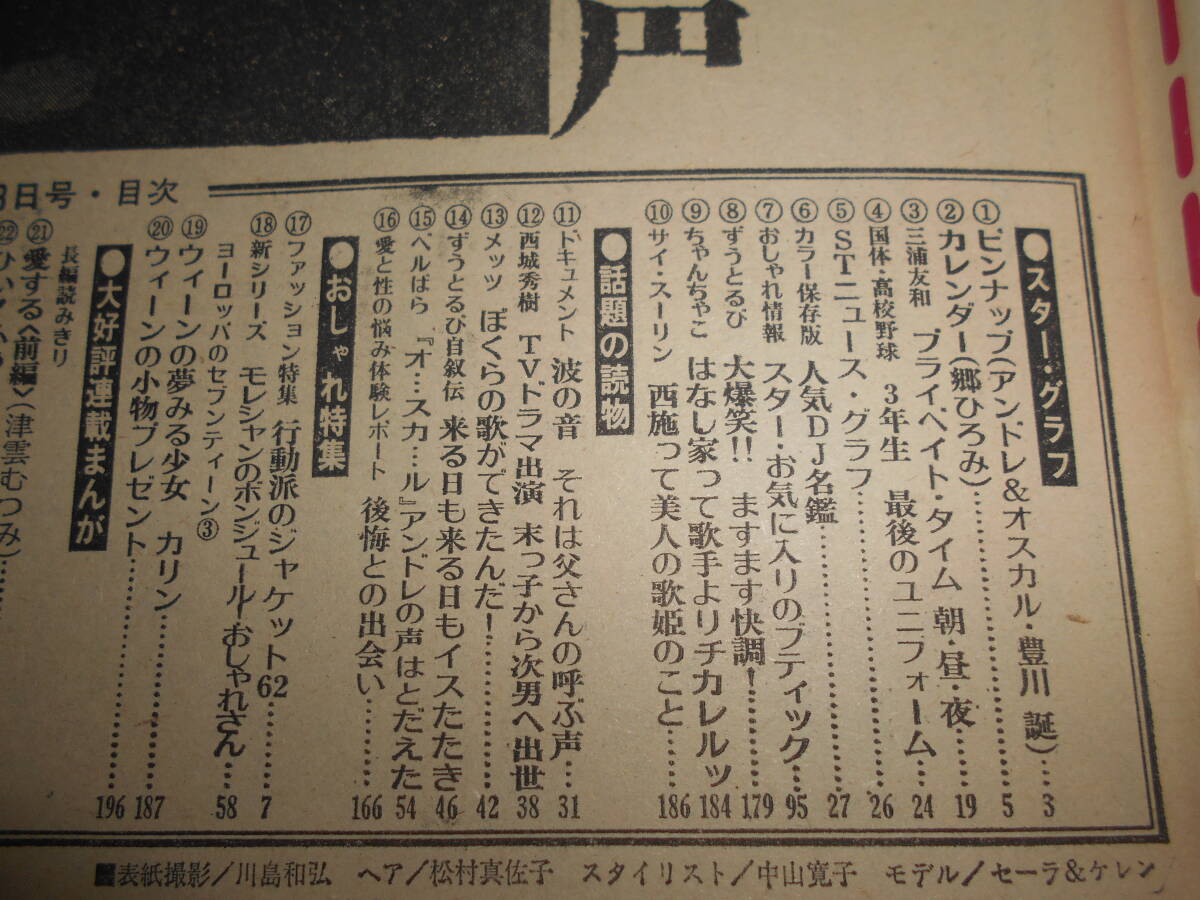 声
3日号・目次
●スター・グラフ
①ピンナップ(アンドレ&オスカル・豊川 誕)…3
②カレンダー(郷ひろみ)…5
③三浦友和 プライベイト・タイム 朝・昼・夜…19
④国体・高校野球 3年生 最後のユニフォーム…24
⑤STニュース・グラフ…26
⑥カラー保存版 人気DJ名鑑…27
⑦おしゃれ情報 スター・お気に入りのブティック…95
⑧ずうとるび 大爆笑!! ますます快調!…179
⑨ちゃんちゃこ はなし家って歌手よりチカレルッ 184
⑩サイ・スーリン 西施って美人の歌姫のこと…186
●話題の読物
⑪ドキュメント 波の音 それは父さんの呼ぶ声…31
⑫西城秀樹 TVドラマ出演 末っ子から次男へ出世 38
⑬メッツ ぼくらの歌ができたんだ!…42
⑭ずうとるび自叙伝 来る日も来る日もイスたたき 46
⑮ベルばら 『オ…スカ…ル』アンドレの声はとだえた 54
⑯愛と性の悩み体験レポート 後悔との出会い…166
●おしゃれ特集
⑰ファッション特集 行動派のジャケット62…7
⑱新シリーズ モレシャンのボンジュール・おしゃれさん…58
ヨーロッパのセブンティーン③
⑲ウィーンの夢みる少女 カリン…187
⑳ウィーンの小物プレゼント…196
●大好評連載まんが
長編読みきり
㉑愛する<前編>(津雲むつみ)…
㉒
■表紙撮影/川島和弘 ヘア/松村真佐子 スタイリスト/中山寛子 モデル/セーラ&ケレン